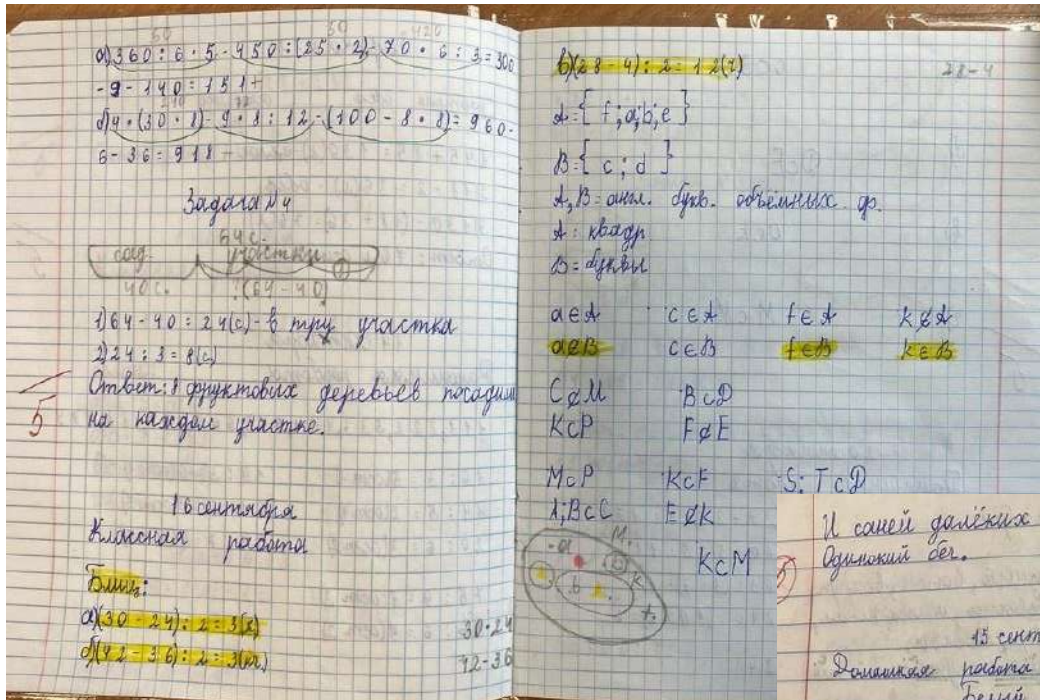 60 50 420
а) 360 : 6 · 5 - 450 : (25 · 2) - 70 · 6 : 3 = 300
- 9 - 140 = 151
240 72
б) 4 · (30 · 8) - 9 · 8 : 12 - (100 - 8 · 8) = 960 -
6 - 36 = 918
Задача №4
64 с.
сад. участки
40 с. ? (64 - 40)
1) 64 - 40 = 24(с) - в тру участка
2) 24 : 3 = 8(с)
Ответ: 8 фруктовых деревьев посадим
на каждом участке.
5
16 сентября
Классная работа
Блиц:
а) (30 - 24) : 2 = 3(к) 30·24
б) (42 - 36) : 2 = 3(кг.) 42-36
в) (28 - 4) : 2 = 12(г) 28-4
A = { f; a; b; e }
B = { c; d }
A, B = англ. букв. объёмных ф.
A: квадр
B = буквы
a∈A c∈A f∈A k∉A
a∉B c∈B f∈B k∈B
C⊄M B⊂D
K⊂P F⊄E
M⊂P K⊂F S; T⊂D
A;B⊂C E⊄K
K⊂M
a M.
b k
t.
И саней далёких
Одинокий бег.
15 сент
Домашняя работа
Белый